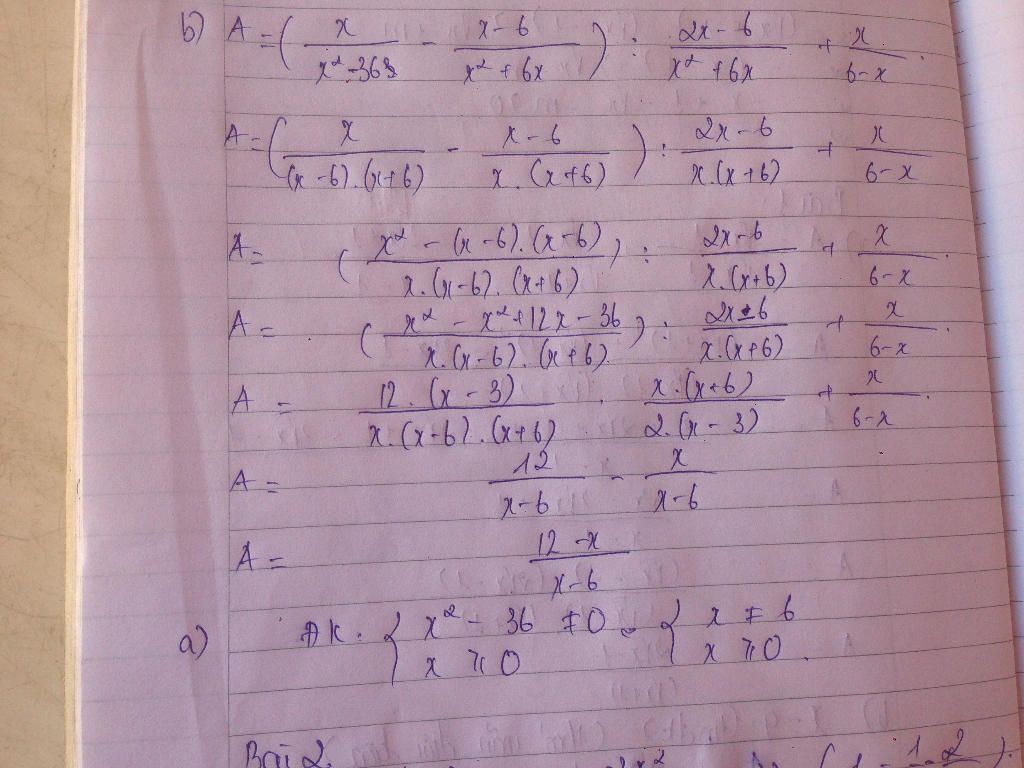 b) A = ( x / (x² - 36) - (x - 6) / (x² + 6x) ) : (2x - 6) / (x² + 6x) + x / (6 - x).
A = ( x / ((x - 6).(x + 6)) - (x - 6) / (x.(x + 6)) ) : (2x - 6) / (x.(x + 6)) + x / (6 - x)
A = ( (x² - (x - 6).(x - 6)) / (x.(x - 6).(x + 6)) ) : (2x - 6) / (x.(x + 6)) + x / (6 - x).
A = ( (x² - x² + 12x - 36) / (x.(x - 6).(x + 6)) ) : (2x - 6) / (x.(x + 6)) + x / (6 - x).
A = (12.(x - 3)) / (x.(x - 6).(x + 6)) . (x.(x + 6)) / (2.(x - 3)) + x / (6 - x).
A = 12 / (x - 6) - x / (x - 6)
A = (12 - x) / (x - 6)
a) ĐK: { x² - 36 ≠ 0 { x ≠ 6
x ≥ 0 x ≥ 0.
Bài 2